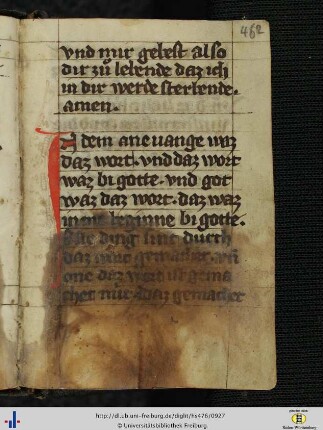 462
vnd mir gebest also
dir zů lebende daz ich
in dir werde sterbende.
amen.
A dem aneuange waz
daz wort. vnd daz wort
waz bi gotte. vnd got
waz daz wort. daz waz
in me beginne bi gotte.
Alle ding sint durch
daz wort gemachet. vn̄
one daz wort ist gema
chet nut. daz gemachet
http://dl.ub.uni-freiburg.de/diglit/hs476/0927
© Universitätsbibliothek Freiburg